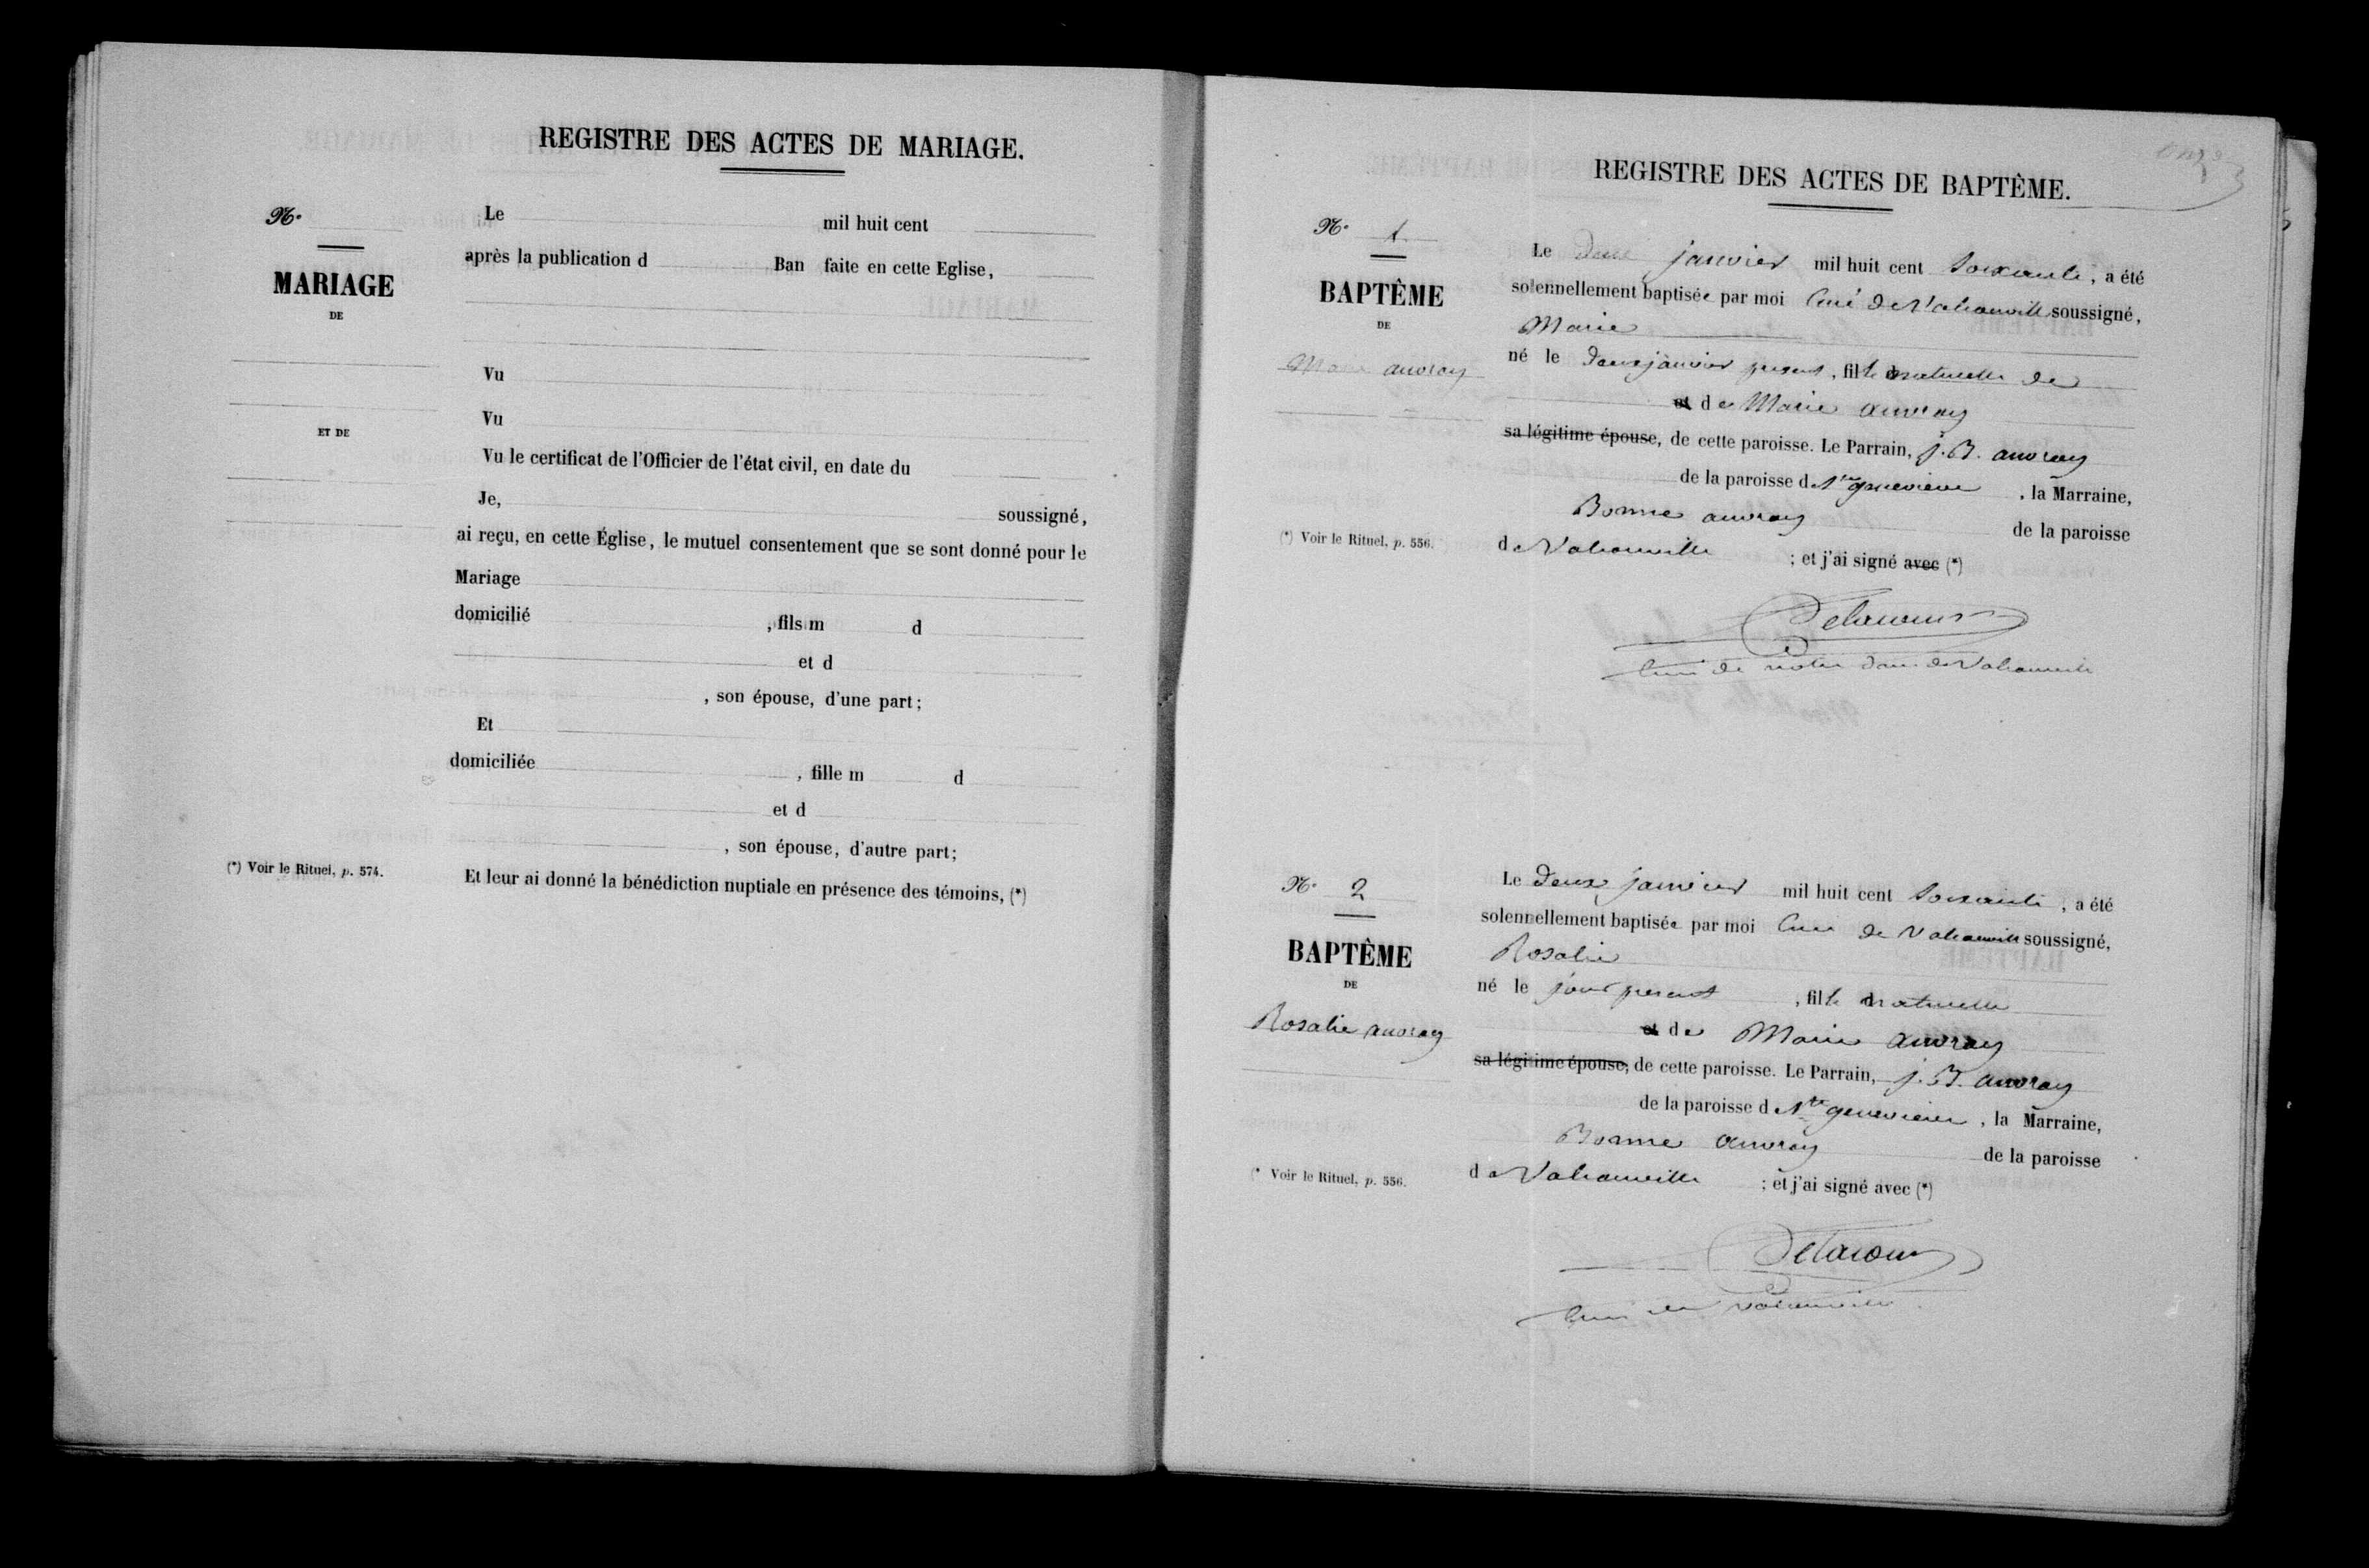 REGISTRE DES ACTES DE MARIAGE.
N.º
MARIAGE
DE
ET DE
Le mil huit cent
après la publication d Ban faite en cette Eglise,
Vu
Vu
Vu le certificat de l'Officier de l'état civil, en date du
Je, soussigné,
ai reçu, en cette Église, le mutuel consentement que se sont donné pour le
Mariage
domicilié , fils m d
et d
, son épouse, d'une part;
Et
domiciliée , fille m d
et d
, son épouse, d'autre part;
(*) Voir le Rituel, p. 574.
Et leur ai donné la bénédiction nuptiale en présence des témoins, (*)
onze
REGISTRE DES ACTES DE BAPTÊME.
N.º 1
BAPTÊME
DE
Marie auvray
Le deux janvier mil huit cent soixante, a été
solennellement baptisée par moi Curé de soussigné,
Marie
né le deux janvier present, fille naturelle de
et de Marie auvray
sa légitime épouse, de cette paroisse. Le Parrain, j. B. auvray
de la paroisse de Ste genevieve, la Marraine,
Bonne auvray de la paroisse
(*) Voir le Rituel, p. 556.
de ; et j'ai signé avec (*)
Delacour
Curé de notre dame de
N.º 2
BAPTÊME
DE
Rosalie auvray
Le deux janvier mil huit cent soixante, a été
solennellement baptisée par moi Curé de soussigné,
Rosalie
né le jour present, fille naturelle
et de Marie auvray
sa légitime épouse, de cette paroisse. Le Parrain, j. B. auvray
de la paroisse de Ste genevieve, la Marraine,
Bonne auvray de la paroisse
(* Voir le Rituel, p. 556.
de ; et j'ai signé avec (*)
Delacour
Curé de